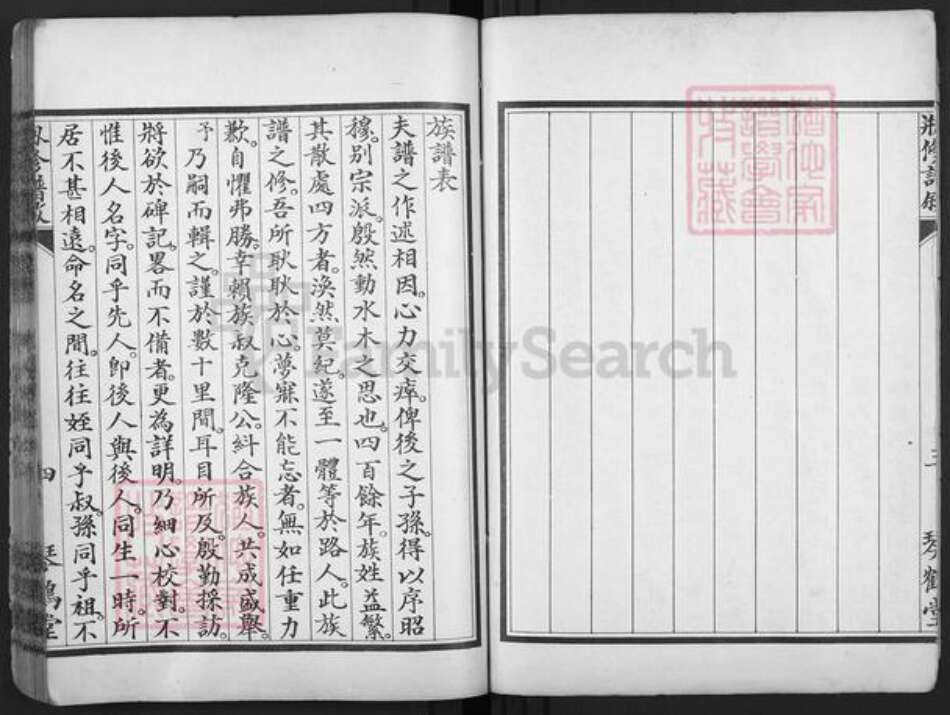 琴鶴堂
猶他家譜學會收藏
族譜表
夫譜之作述相因。心力交瘁。俾後之子孫。得以序昭
穆。別宗派。殷然動水木之思也。四百餘年。族姓益繁。
其散處四方者。渙然莫紀。遂至一體等於路人。此族
譜之修。吾所耿耿於心。夢寐不能忘者。無如任重力
歉。自懼弗勝。幸賴族叔克隆公。糾合族人。共成盛舉。
予乃嗣而輯之。謹於數十里間。耳目所及。殷勤採訪。
將欲於碑記。畧而不備者。更為詳明。乃細心校對。不
惟後人名字。同乎先人。卽後人與後人。同生一時。所
居不甚相遠。命名之間。往往姪同乎叔。孫同乎祖。不
四
琴鶴堂
FamilySearch